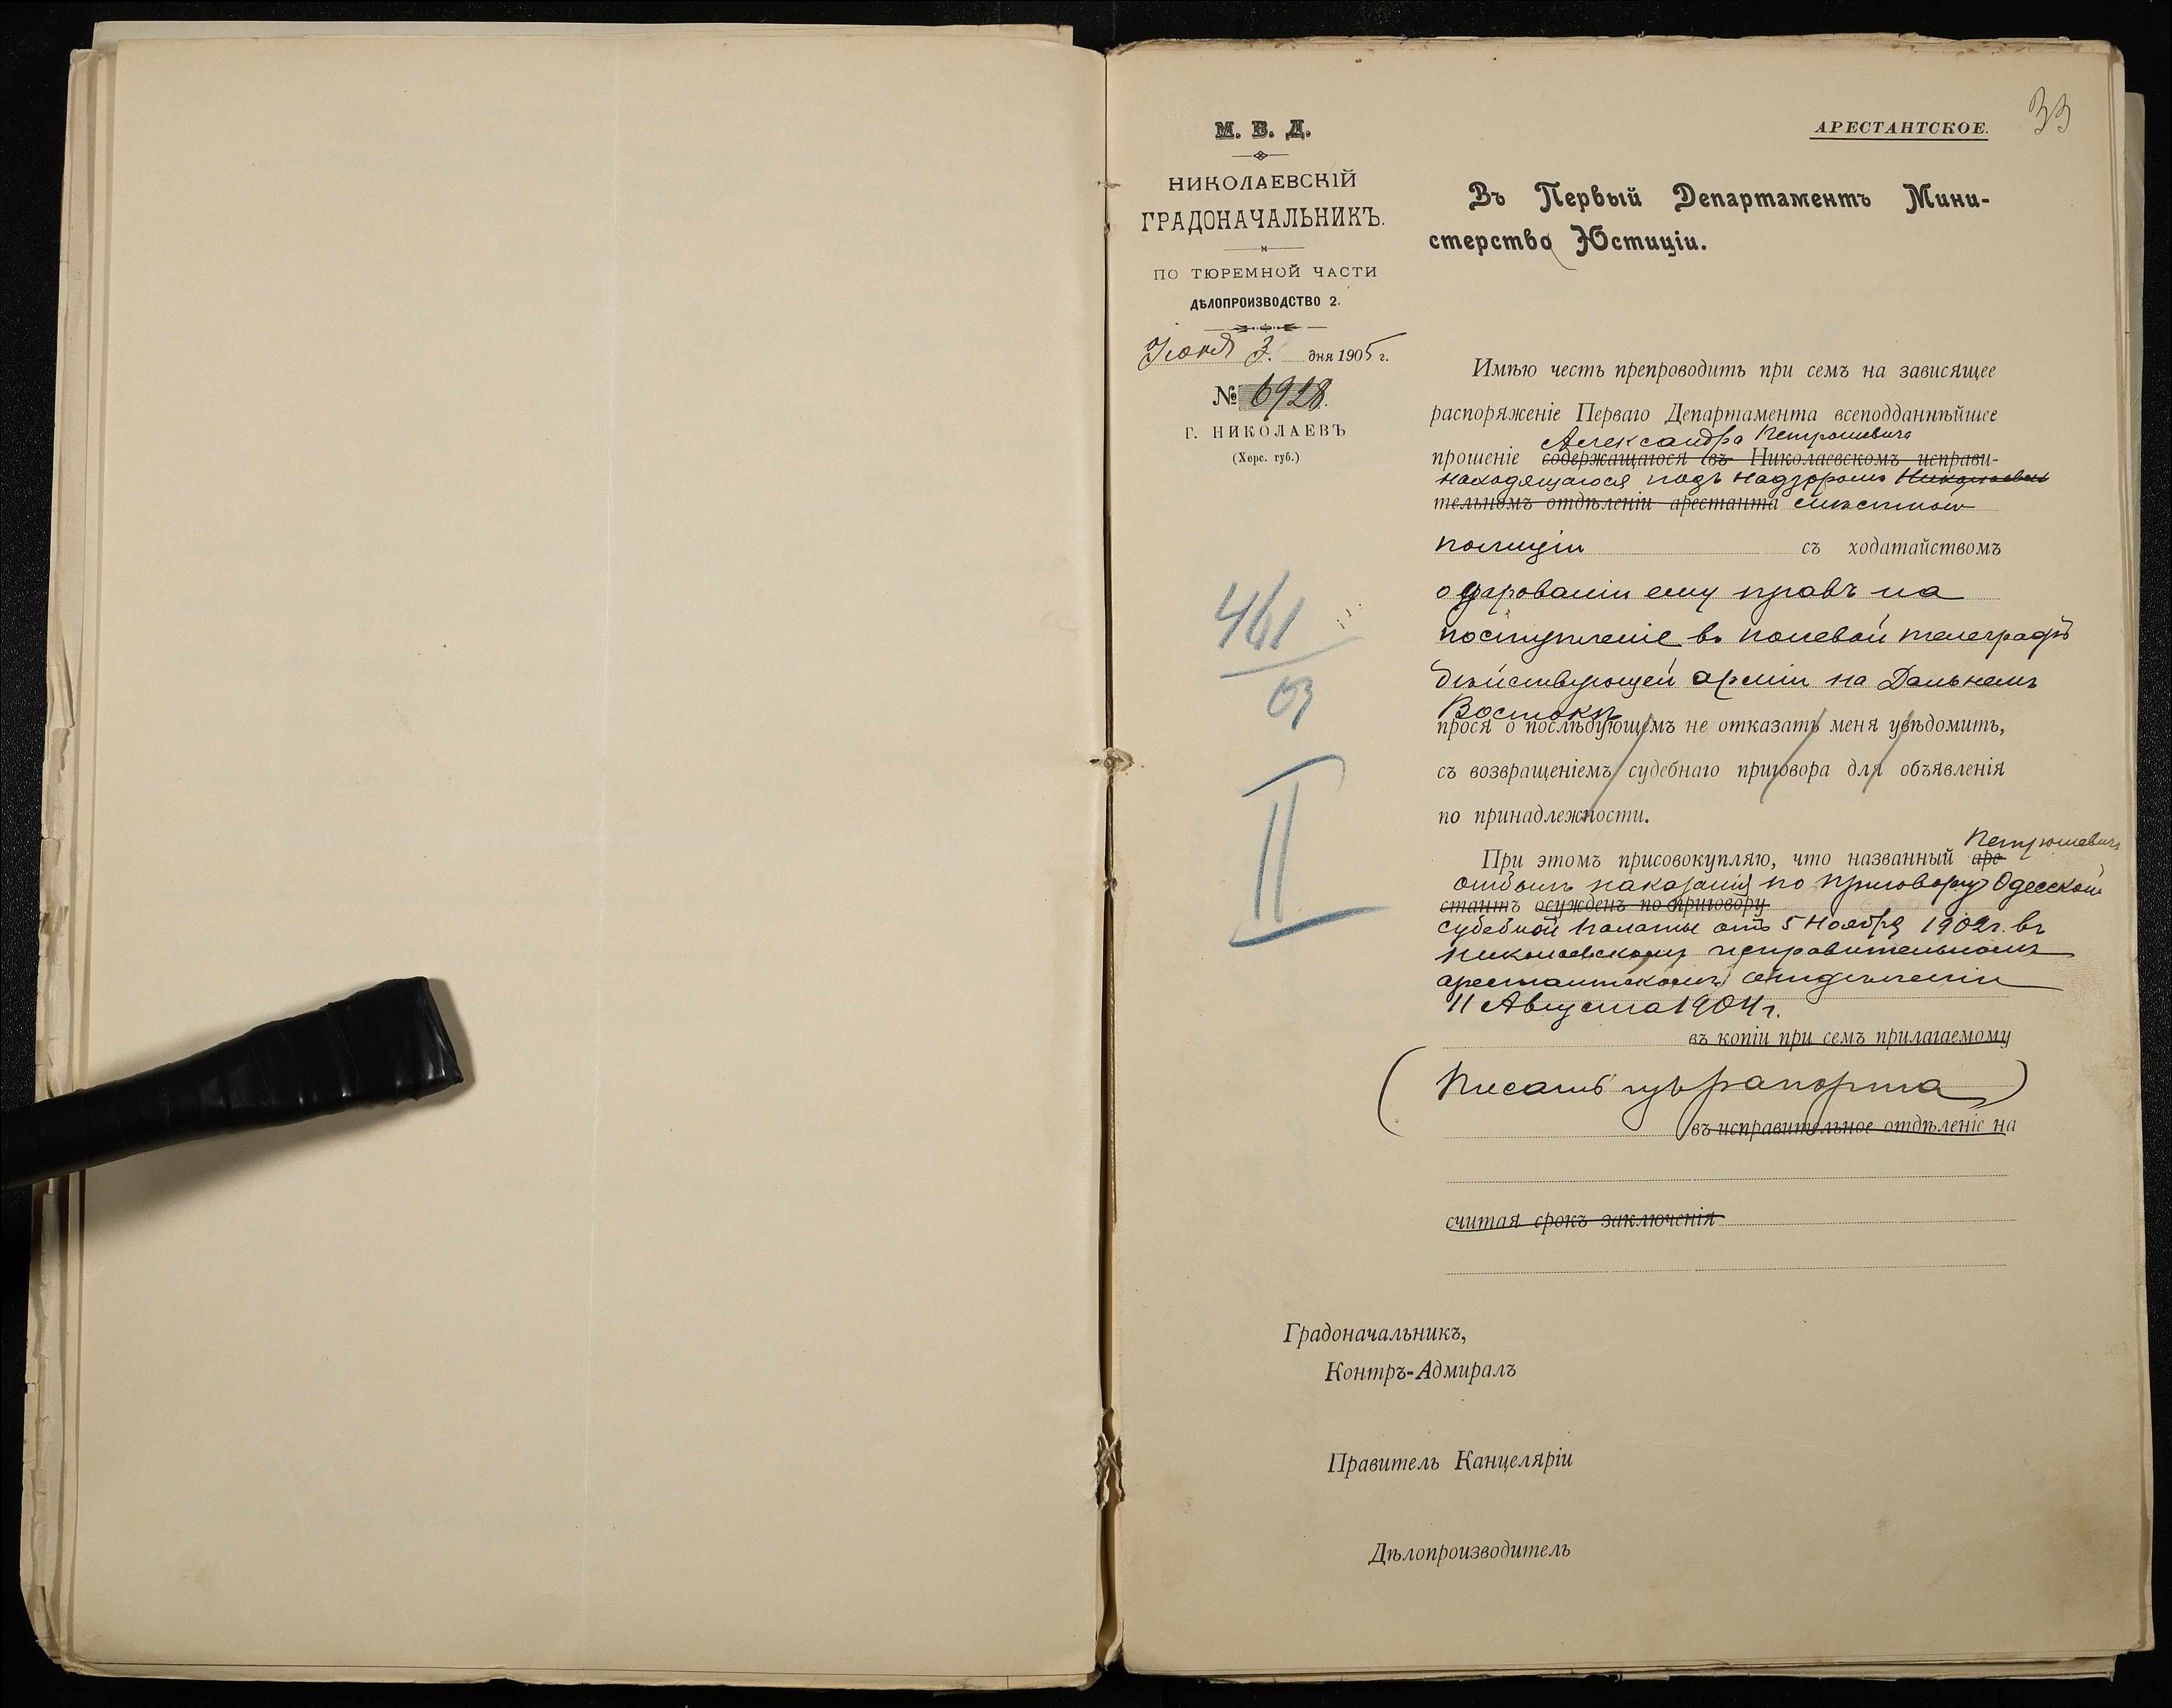 М. В. Д.
НИКОЛАЕВСКІЙ
ГРАДОНАЧАЛЬНИКЪ.
ПО ТЮРЕМНОЙ ЧАСТИ
ДѢЛОПРОИЗВОДСТВО 2.
Іюня 3. дня 1905 г.
№ 6928.
Г. НИКОЛАЕВЪ
(Херс. губ.)
461
03
II
АРЕСТАНТСКОЕ.
33
Въ Первый Департаментъ Мини-
стерства Юстиціи.
Имѣю честь препроводить при семъ на зависящее
распоряженіе Перваго Департамента всеподданнѣйшее
Александра Петрошевича
прошеніе содержащагося въ Николаевскомъ исправи-
находящагося подъ надзоромъ Николаевск
тельномъ отдѣленіи арестанта мѣстной
полиціи съ ходатайствомъ
о дарованіи ему правъ на
поступленіе въ полевой телеграфъ
дѣйствующей арміи на Дальнемъ
Востокѣ
прося о послѣдующемъ не отказать меня увѣдомить,
съ возвращеніемъ судебнаго приговора для объявленія
по принадлежности.
Петрошевичъ
При этомъ присовокупляю, что названный аре-
отбылъ наказаніе по приговору Одесской
стантъ осужденъ по приговору
судебной палаты отъ 5 Ноября 1902 г. въ
Николаевскомъ исправительномъ
арестантскомъ отдѣленіи
11 Августа 1904 г.
въ копіи при семъ прилагаемому
(Писать изъ рапорта)
въ исправительное отдѣленіе на
считая срокъ заключенія
Градоначальникъ,
Контръ-Адмиралъ
Правитель Канцеляріи
Дѣлопроизводитель